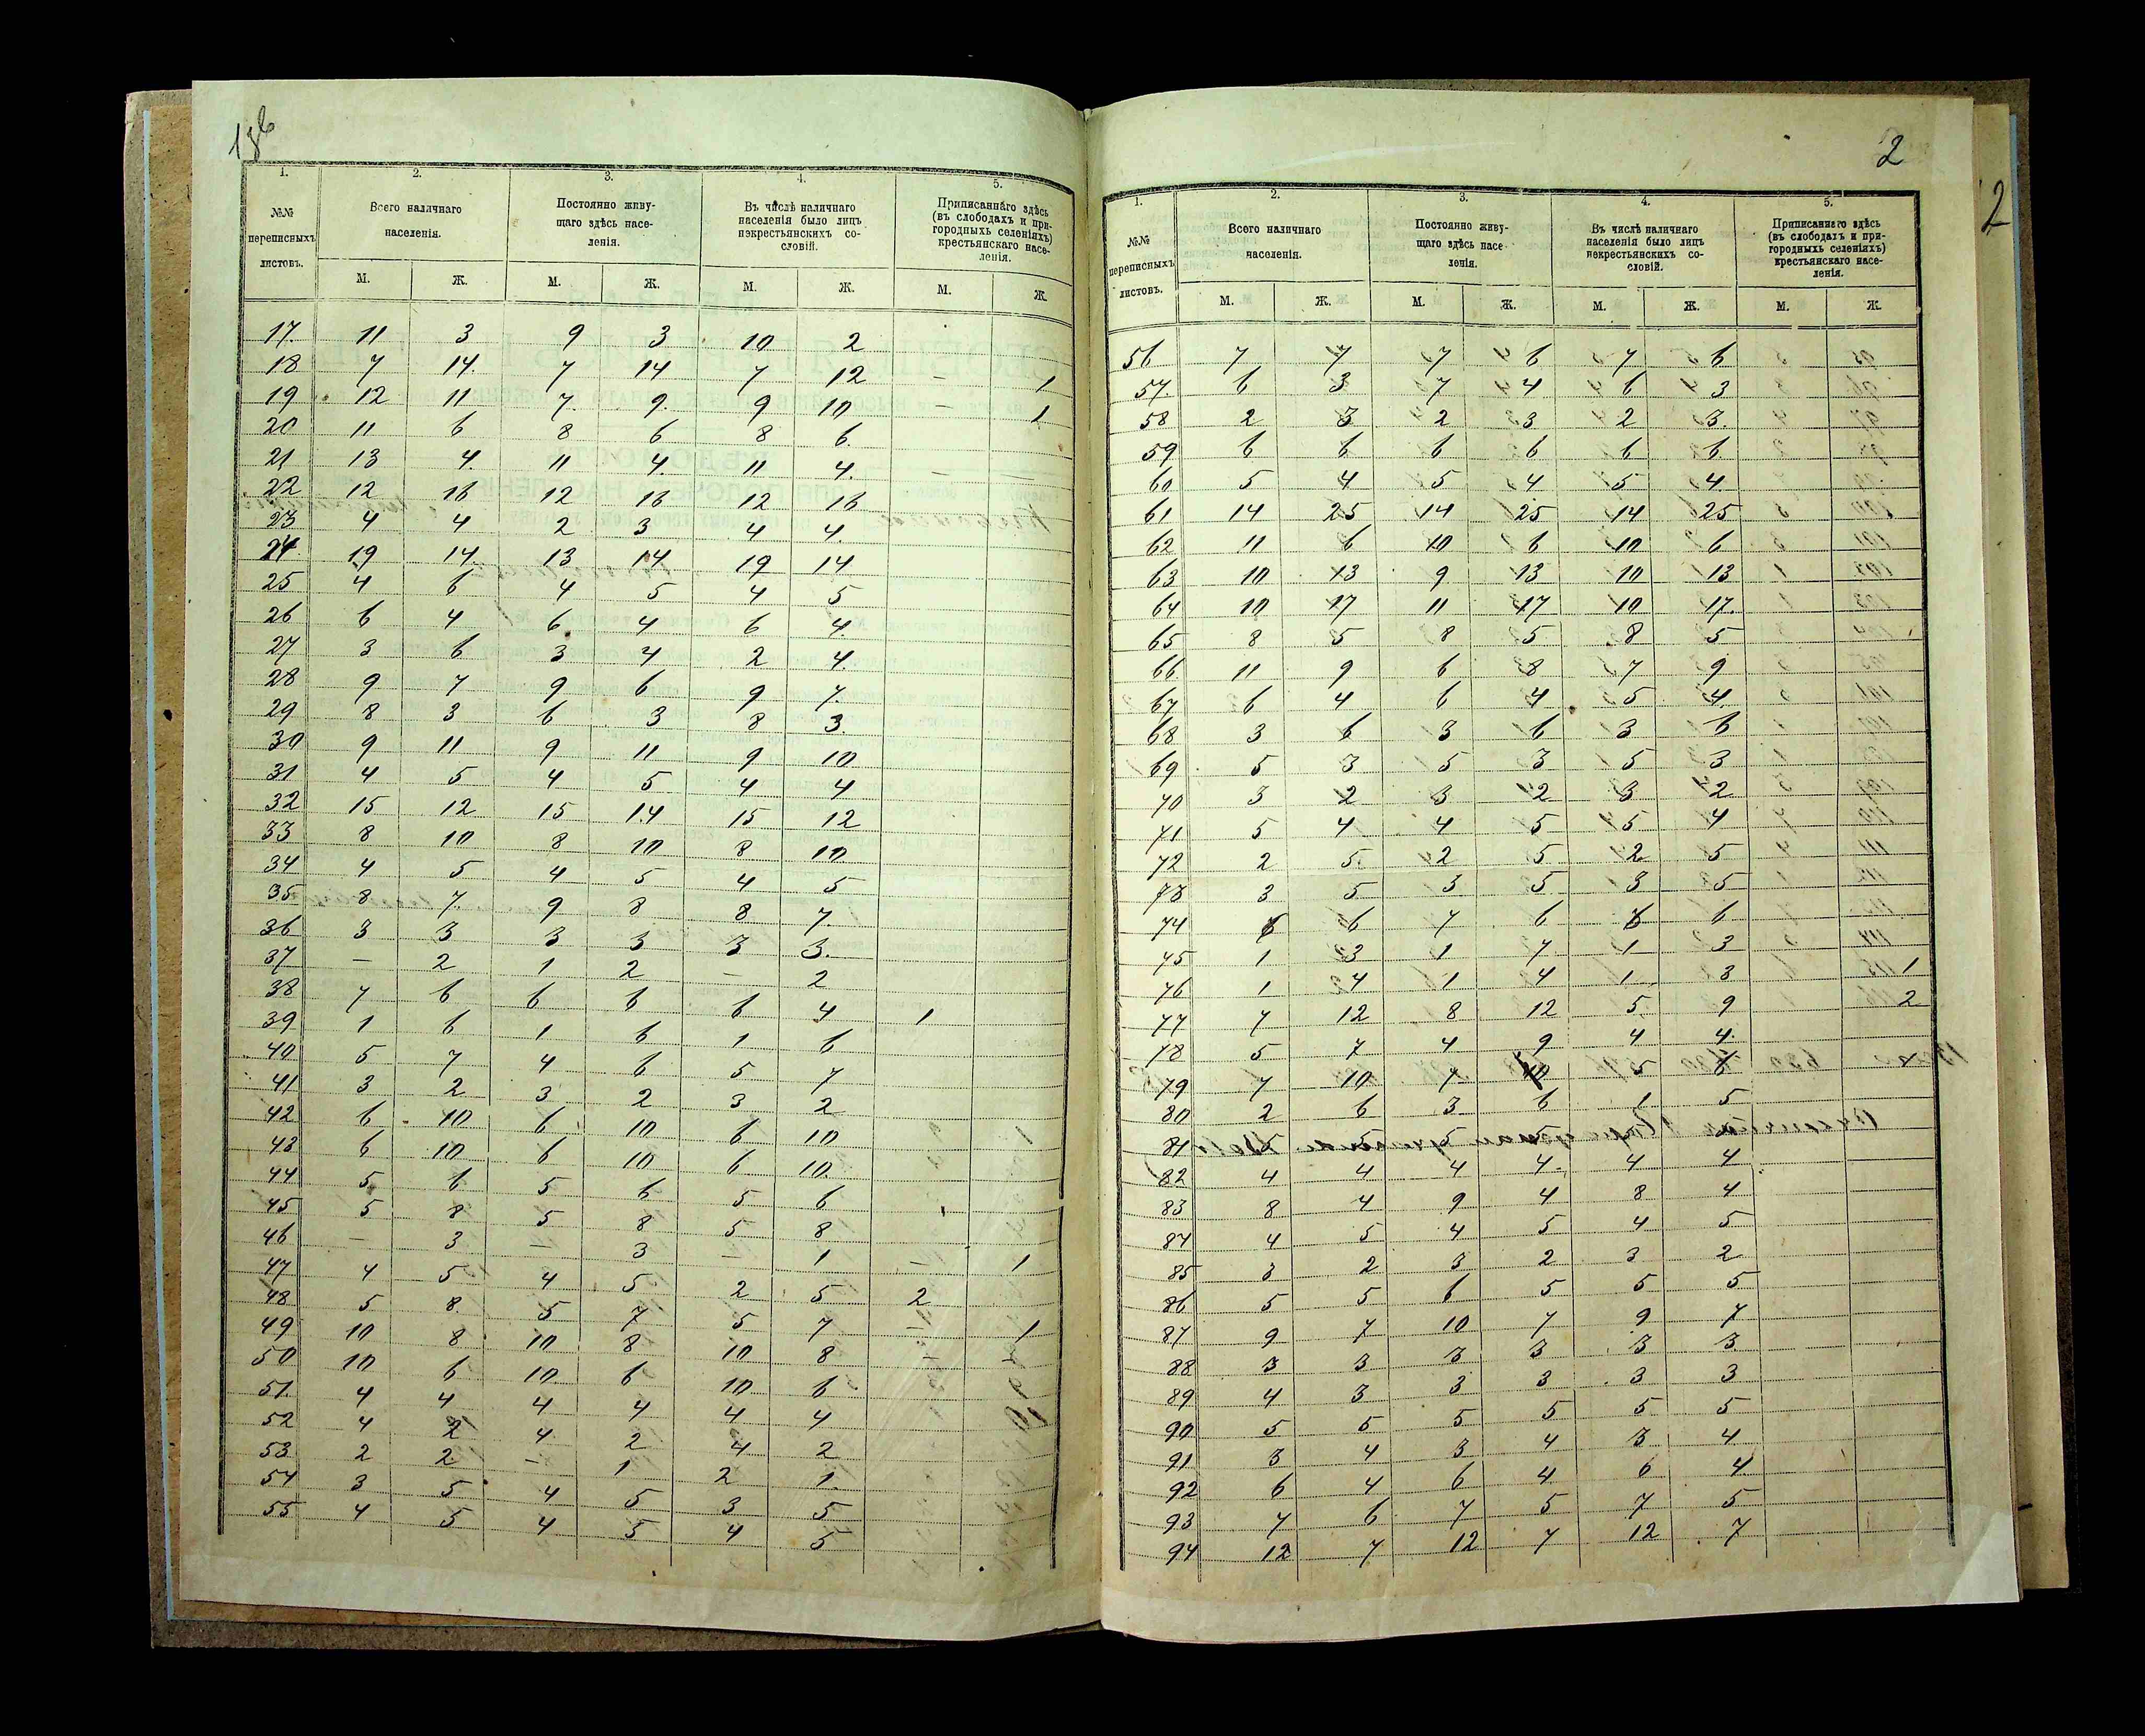 1об
1. 2. 3. 4. 5.
№№ переписныхъ листовъ. Всего наличнаго населенія. Постоянно живущаго здѣсь населенія. Въ числѣ наличнаго населенія было лицъ некрестьянскихъ сословій. Приписаннаго здѣсь (въ слободахъ и пригородныхъ селеніяхъ) крестьянскаго населенія.
М. Ж. М. Ж. М. Ж. М. Ж.
17. 11 3 9 3 10 2
18 7 14. 7 14 7 12 — 1
19 12 11 7. 9. 9 10 — 1
20 11 6 8 6 8 6.
21 13 4. 11 4. 11 4. —
22 12 16 12 16 12 16
23 4 4 2 3 4 4.
24 19 14. 13 14 19 14
25 4 6 4 5 4 5
26 6 4 6. 4 6 4.
27 3 6 3 4 2 4.
28 9 7 9 6 9 7.
29 8 3 6 3 8 3.
30 9 11 9 11 9 10
31 4 5 4 5 4 4
32 15 12 15 14 15 12
33 8 10 8 10 8 10
34 4 5 4 5 4 5
35 8 7. 9 8 8 7.
36 3 3 3 3 3 3.
37 — 2 1 2 — 2
38 7 6 6 6 6 4 1
39 1 6 1 6 1 6
40 5 7 4 6 5 7
41 3 2 3 2 3 2
42 6 10 6 10 6 10
43 6 10 6 10 6 10.
44 5 6 5 6 5 6
45 5 8 5 8 5 8
46 — 3 — 3 — 1 — 1
47 4 5 4 5 2 5 2
48 5 8 5 7 5 7 — 1
49 10 8 10 8 10 8
50 10 6 10 6 10 6
51. 4 4 4 4 4 4
52 4 2 4 2 4 2
53 2 2 — 1 2 1.
54 3 5 4 5 3 5
55 4 5 4 5 4 5
2
2
1. 2. 3. 4. 5.
№№ переписныхъ листовъ. Всего наличнаго населенія. Постоянно живущаго здѣсь населенія. Въ числѣ наличнаго населенія было лицъ некрестьянскихъ сословій. Приписаннаго здѣсь (въ слободахъ и пригородныхъ селеніяхъ) крестьянскаго населенія.
М. Ж. М. Ж. М. Ж. М. Ж.
56 7 7 7 6 7 6
57. 6 3 7 4 6 3
58 2 3 2 3 2 3.
59 6 6 6 6 6 6
60 5 4 5 4 5 4.
61 14 25 14 25 14 25
62 11 6 10 6 10 6
63 10 13 9 13 10 13
64 10 17 11 17 10 17.
65 8 5 8 5 8 5
66 11 9 6 8 7 9
67 6 4 6 4 5 4.
68 3 6 3 6 3 6
69 5 3 5 3 5 3
70 3 2 3 2 3 2
71 5 4 4 5 5 4
72 2 5. 2 5 2 5
73 3 5 3 5 3 5
74 6 7 6 6
75 1 3 1 7 1 3
76 1 4 1 4 1 3 1
77 7 12 8 12 5 9 2
78 5 7 4 9 4 4.
79 7 10 7 10 5
80 2 6 3 6 1 5
81 5 5
82 4 4 4 4. 4 4
83 8 4 9 4 8 4
84 4 5 4 5 4 5
85 3 2 3 2 3 2
86 5 5 6 5 5 5
87 9 7 10 7 9 7
88 3 3 3 3 3 3.
89 4 3 3 3 3 3
90 5 5 5 5 5 5
91 3 4 3 4 3 4
92 6 4 6 4 6 4.
93 7 6 7 5 7 5
94 12 7 12 7 12 7